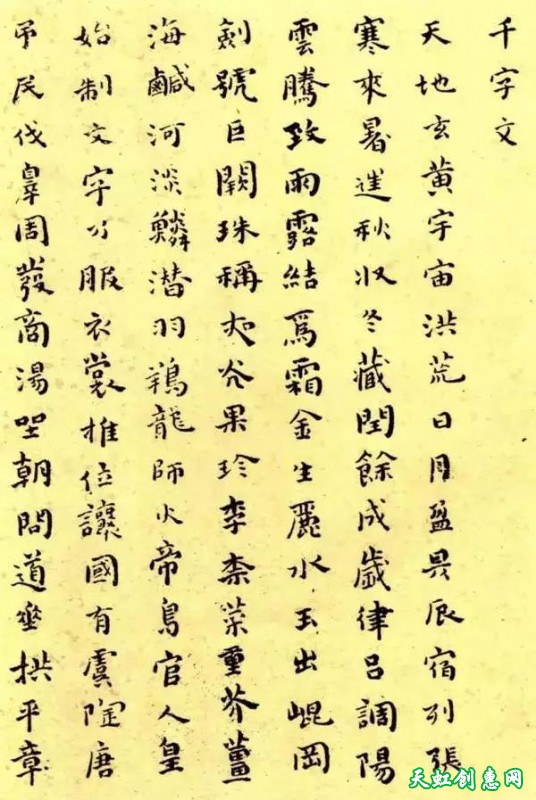 千字文
天地玄黃宇宙洪荒日月盈昃辰宿列張
寒來暑往秋收冬藏閏餘成歲律呂調陽
雲騰致雨露結爲霜金生麗水玉出崐岡
劍號巨闕珠稱夜光果珍李柰菜重芥薑
海鹹河淡鱗潜羽翔龍師火帝鳥官人皇
始制文字乃服衣裳推位讓國有虞陶唐
吊民伐辠周發商湯坐朝問道垂拱平章
天虹创惠网